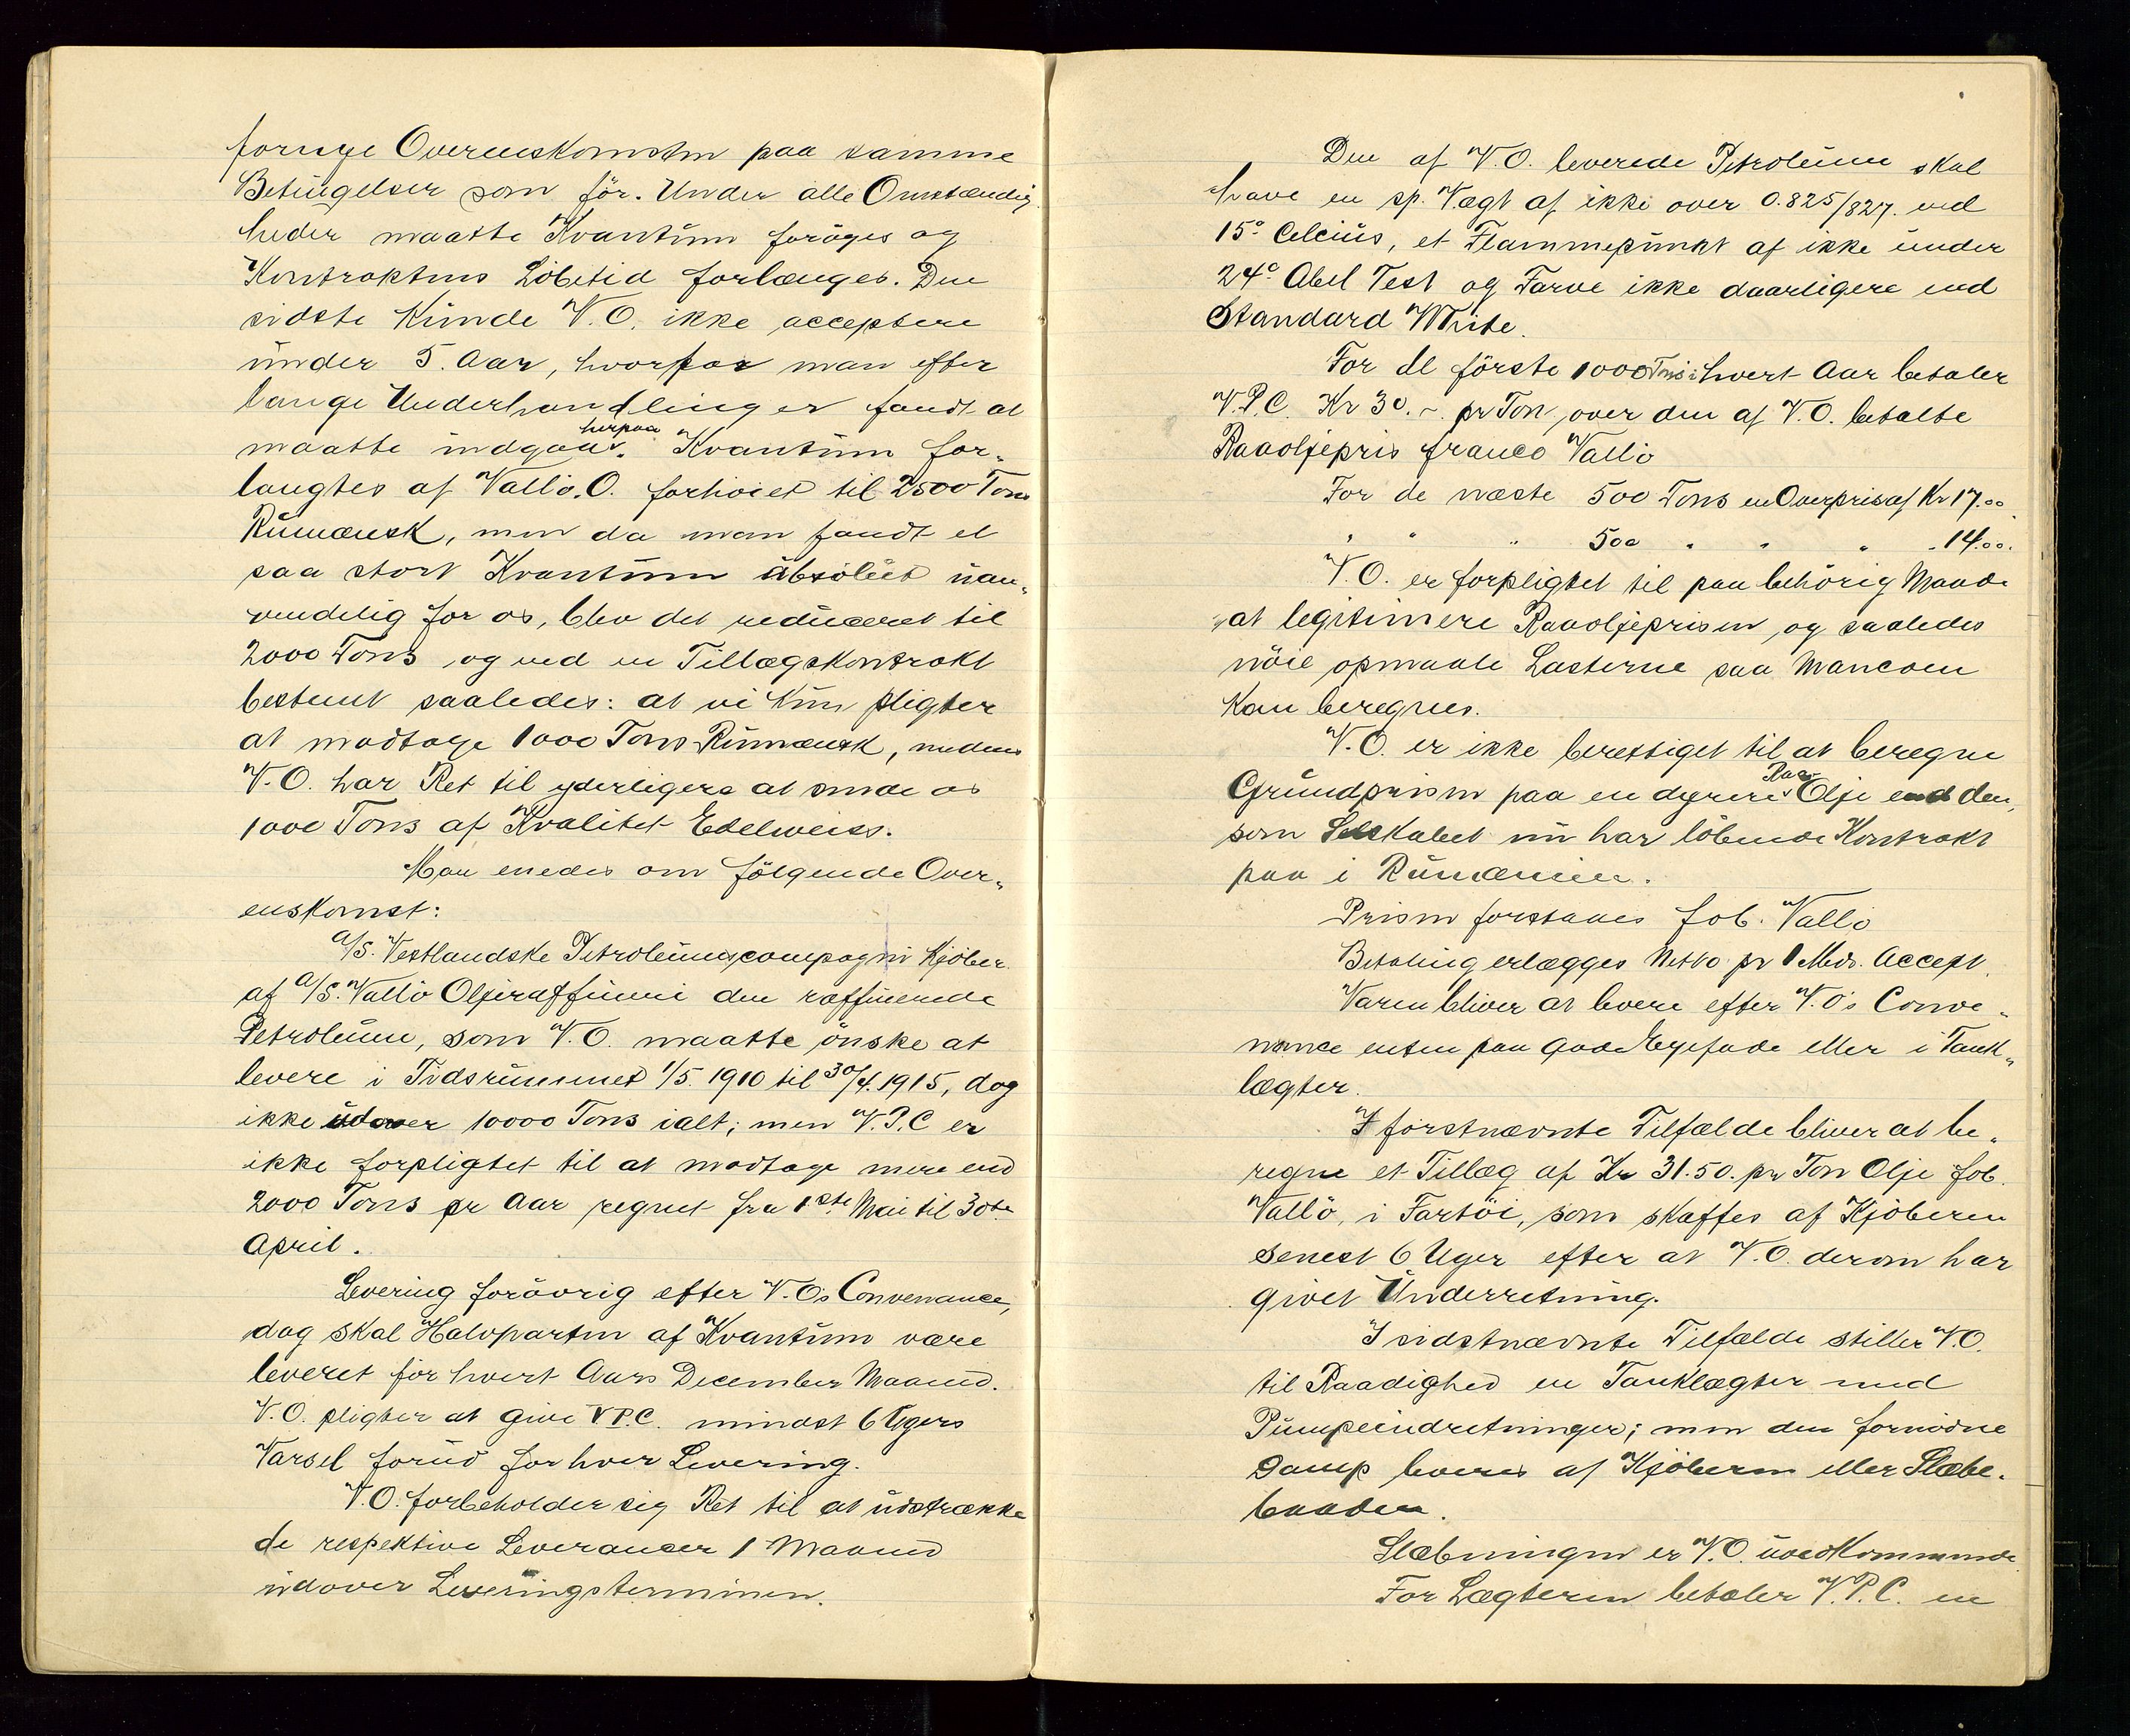 fornye Overenskomsten paa samme
Betingelser som för. Under alle Omstændig
heder maatte Kvantum foröges og
Kontraktens Löbetid forlænges. Den
sidste kunde V.O. ikke acceptere
under 5. Aar, hvorfor man efter
lange Underhandlinger fandt at
maatte indgaa herpaa. Kvantum for-
langtes af Vallö. O. forhöiet til 2500 Tons
Rumænsk, men da man fandt et
saa stort Kvantum absolut uan-
vendelig for os, blev det reduceret til
2000 Tons og ved en Tillægskontrakt
bestemt saaledes: at vi kun pligter
at modtage 1000 Tons Rumænsk, medens
V.O. har Ret til yderligere at sende os
1000 Tons af Kvalitet Edelweiss.
Man enedes om fölgende Over-
enskomst:
A/S. Vestlandske Petroleumscompagni kjöber
af A/S. Vallö Oljeraffineri den raffinerede
Petroleum, som V.O. maatte önske at
levere i Tidsrummet 1/5. 1910 til 30/4. 1915, dog
ikke udover 10000 Tons ialt; men V.P.C er
ikke forpligtet til at modtage mere end
2000 Tons pr Aar regnet fra 1ste Mai til 30te
April.
Levering forövrig efter V.O's Convenance,
dog skal Halvparten af Kvantum være
leveret för hvert Aars December Maaned.
V.O. pligter at give V.P.C. mindst 6 Ugers
Varsel forud for hver Levering.
V.O. forbeholder sig Ret til at udstrække
de respektive Leverancer 1 Maaned
udover Leveringsterminen.
Den af V.O. leverede Petroleum skal
have en sp. Vægt af ikke over 0.825/827. ved
15° Celcius, et Flammepunkt af ikke under
24° Abel Test og Farve ikke daarligere end
Standard White.
For de förste 1000 Tons i hvert Aar betaler
V.P.C. Kr 30.~. pr Ton, over den af V.O. betalte
Raaoljepris franco Vallö
For de næste 500 Tons en Overpris af Kr 17.00
" " " 500 " " " " 14.00.
V.O. er forpligtet til paa behörig Maade
at legitimere Raaoljeprisen, og saaledes
nöie opmaale Lasterne saa Mancoen
kan beregnes.
V.O. er ikke berettiget til at beregne
Grundprisen paa en dyrere Raa-Olje end den,
som Selskabet nu har löbende Kontrakt
paa i Rumænien.
Prisen forstaaes fob. Vallö
Betaling erlægges Netto pr 1 Mds. Accept.
Varen bliver at levere efter V.O's Conve-
nance enten paa gode Egefade eller i Tank-
lægter.
I förstnævnte Tilfælde bliver at be-
regne et Tillæg af Kr 31.50. pr Ton Olje fob.
Vallö, i Fartöi, som skaffes af Kjöberen
senest 6 Uger efter at V.O. derom har
givet Underretning.
I sidstnævnte Tilfælde stiller V.O.
til Raadighed en Tanklægter med
Pumpeindretninger; men den fornödne
Damp leveres af Kjöberen eller Slæbe-
baaden.
Slæbningen er V.O. uvedkommende.
For Lægteren betaler V.P.C. en